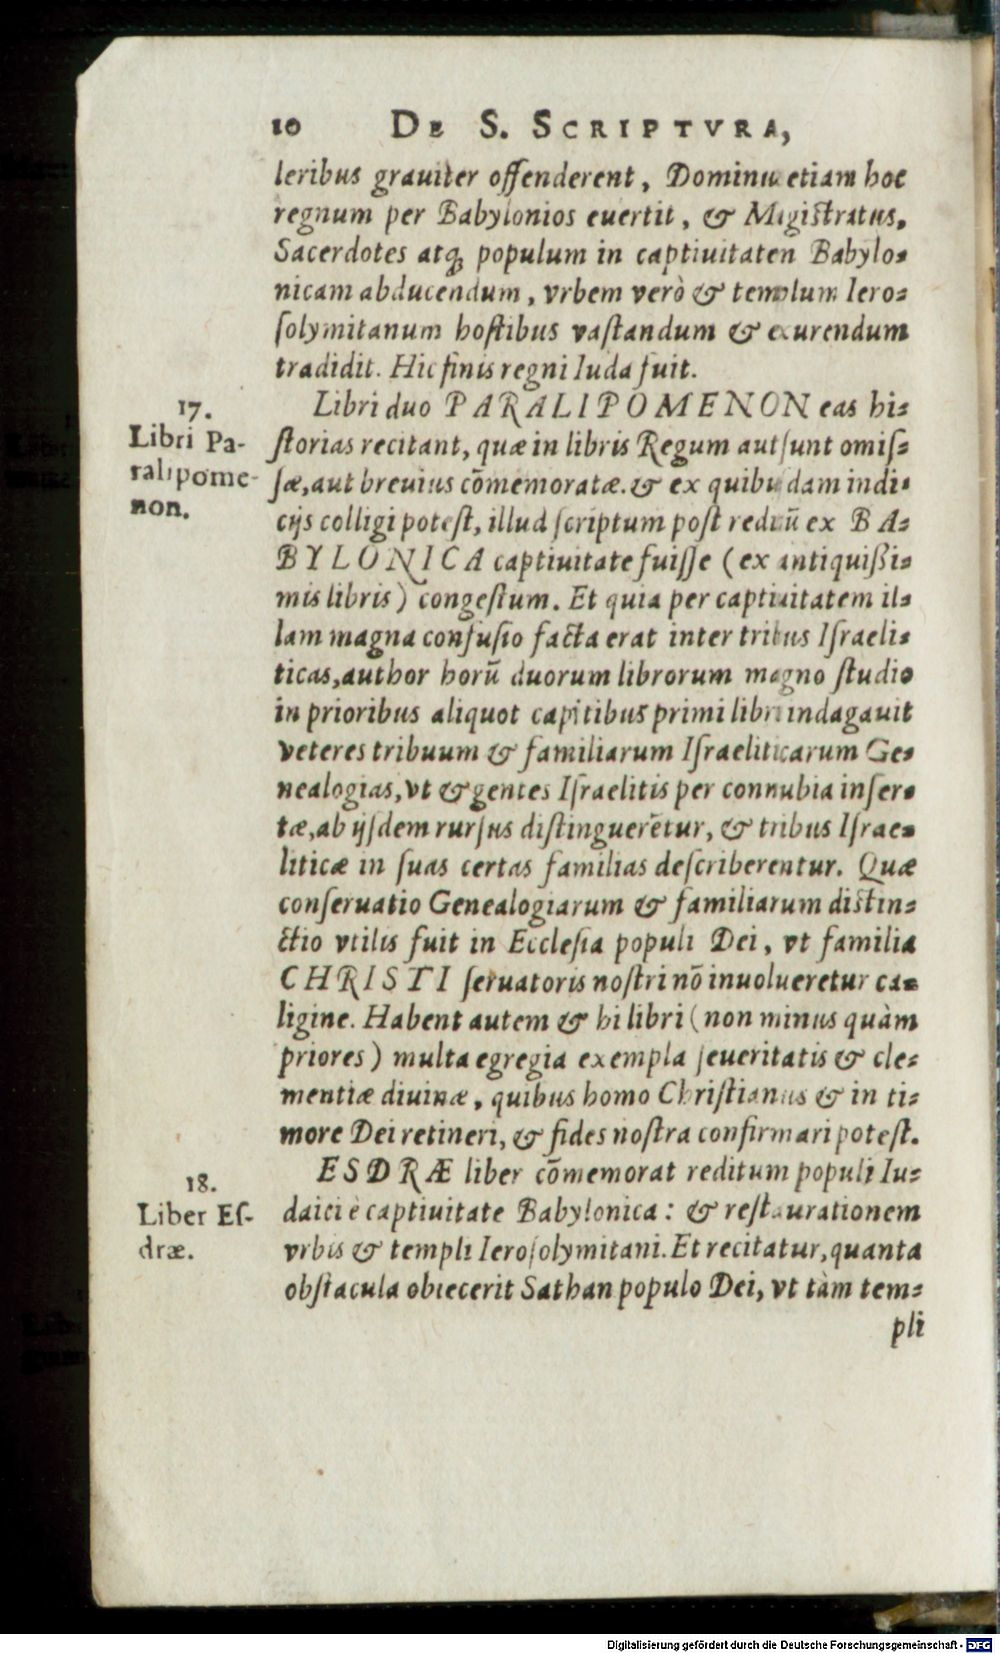 10 DE S. SCRIPTVRA,
leribus grauiter offenderent, Dominus etiam hoc
regnum per Babylonios euertit, & Magiſtratus,
Sacerdotes atq; populum in captiuitaten Babylo-
nicam abducendum, vrbem verò & templum Iero-
ſolymitanum hoſtibus vaſtandum & exurendum
tradidit. Hic finis regni Iuda fuit.
17.
Libri Pa-
ralipome-
non.
Libri duo PARALIPOMENON eas hi-
ſtorias recitant, quæ in libris Regum aut ſunt omiſ-
ſæ, aut breuius cōmemoratæ. & ex quibuſdam indi-
cijs colligi poteſt, illud ſcriptum poſt reditū ex BA-
BYLONICA captiuitate fuiſſe (ex antiquißi-
mis libris) congeſtum. Et quia per captiuitatem il-
lam magna confuſio facta erat inter tribus Iſraeli-
ticas, author horū duorum librorum magno ſtudio
in prioribus aliquot capitibus primi libri indagauit
veteres tribuum & familiarum Iſraeliticarum Ge-
nealogias, vt & gentes Iſraelitis per connubia inſer-
tæ, ab ijſdem rurſus diſtinguerētur, & tribus Iſrae-
liticæ in ſuas certas familias deſcriberentur. Quæ
conſeruatio Genealogiarum & familiarum diſtin-
ctio vtilis fuit in Eccleſia populi Dei, vt familia
CHRISTI ſeruatoris noſtri nō inuolueretur ca-
ligine. Habent autem & hi libri (non minus quàm
priores) multa egregia exempla ſeueritatis & cle-
mentiæ diuinæ, quibus homo Chriſtianus & in ti-
more Dei retineri, & fides noſtra confirmari poteſt.
18.
Liber Eſ-
dræ.
ESDRÆ liber cōmemorat reditum populi Iu-
daici è captiuitate Babylonica: & reſtaurationem
vrbis & templi Ieroſolymitani. Et recitatur, quanta
obſtacula obiecerit Sathan populo Dei, vt tàm tem-
pli
Digitalisierung gefördert durch die Deutsche Forschungsgemeinschaft - DFG